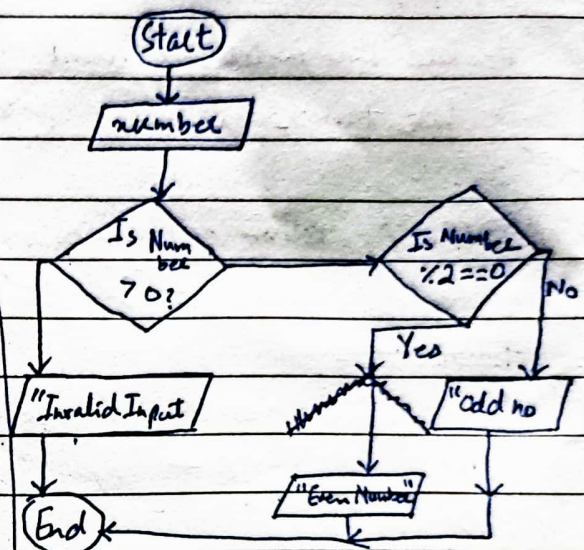 Start
number
Is Num
ber
> 0?
Is Number
%2==0
No
Yes
"Invalid Input
"Odd no
"Even Number"
End